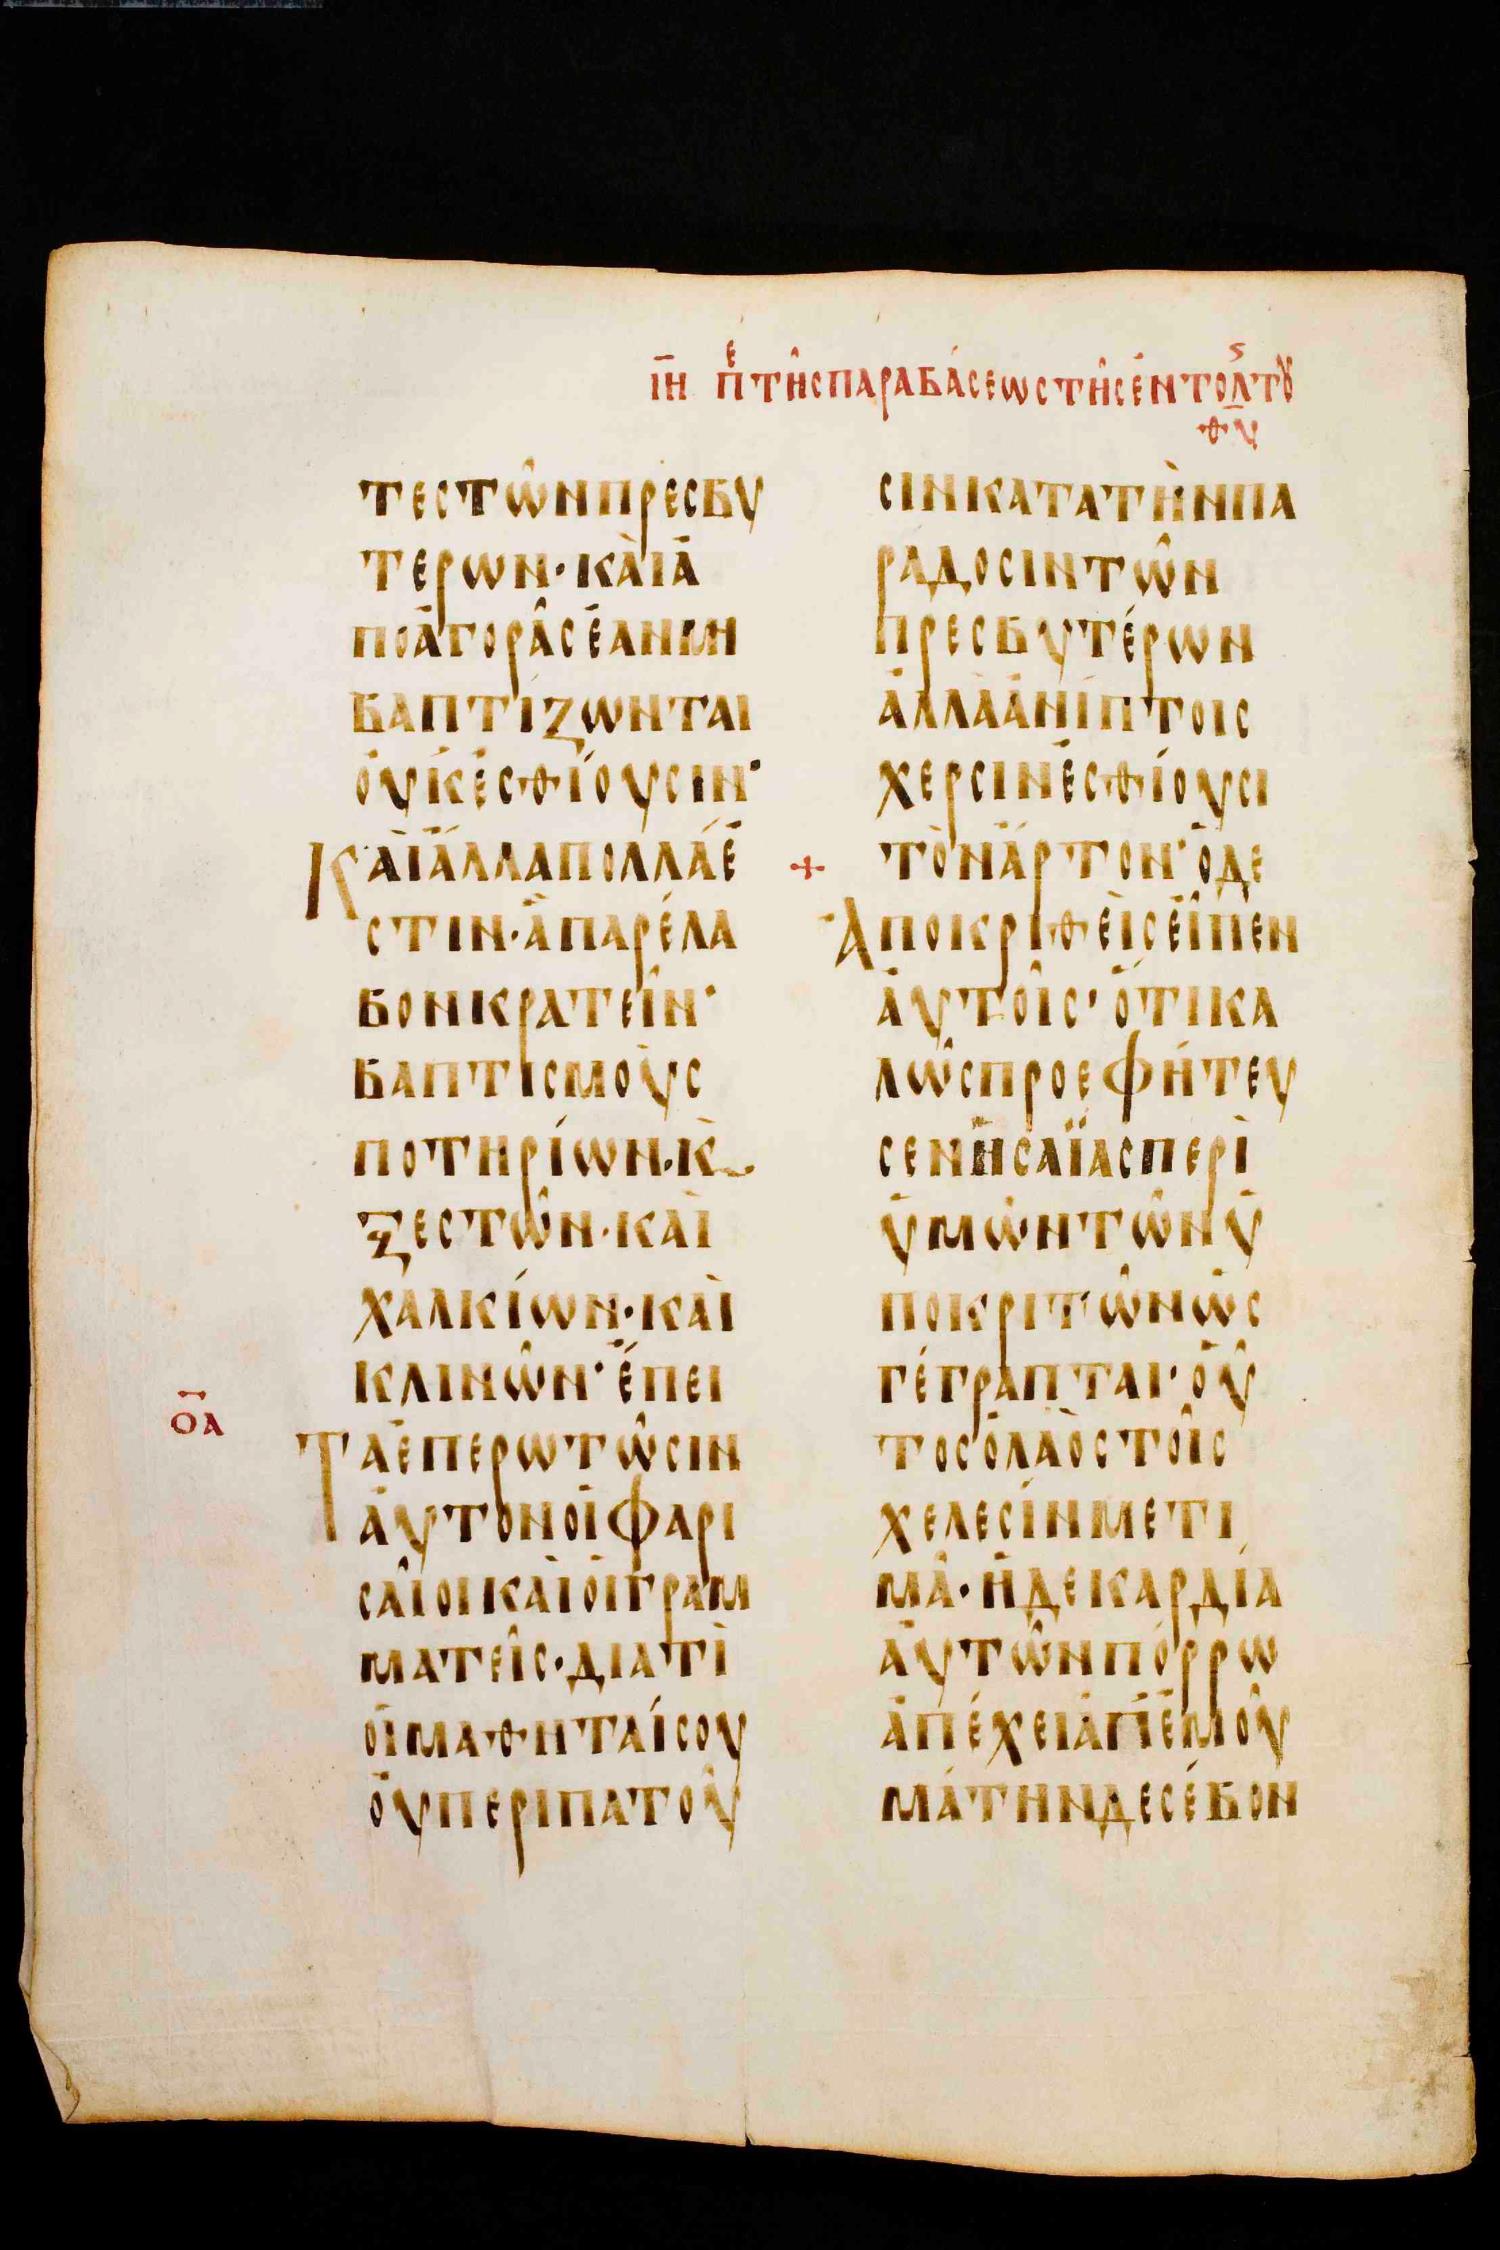 ιη πε τῆς παραβάσεως τῆς ἐντολς τȣ
θυ
τεστῶνπρεσβυ
τερων·καὶἀ
ποἀγορᾶςἐανμη
βαπτίζωνται
ὀυκἐσθίουσιν·
Καὶἄλλαπολλάἐ
στιν·ἃπαρέλα
βονκρατεῖν·
βαπτισμοὺς
ποτηρίων·κ̀
ξεστῶν·καὶ
χαλκίων·καὶ
κλινῶν·ἔπει
οα
Ταἐπερωτῶσιν
ἀυτονοἱφαρι
σαῖοικαὶοἱγραμ
ματεῖς·διατὶ
οἱμαθηταίσου
ὀυπεριπατοῦ
σινκατατὴνπα
ραδοσιντῶν
πρεσβυτέρων
ἀλλὰἀνίπτοις
χερσινἐσθίουσι
+ τὸνἄρτον·ὁδε
Ἀποκριθεὶςἐῖπεν
ἀυτοῖς·ὅτικα
λῶςπροεφήτευ
σενἡσαΐαςπερὶ
ὑμῶντῶνὑ
ποκριτῶνὡς
γέγραπται·οὗ
τοςὁλαὸςτοῖς
χελεσίνμετι
μᾶ·ἡδεκαρδία
ἀυτῶνπόρρω
ἀπέχειἀπἐμοῦ
μάτηνδεσέβον